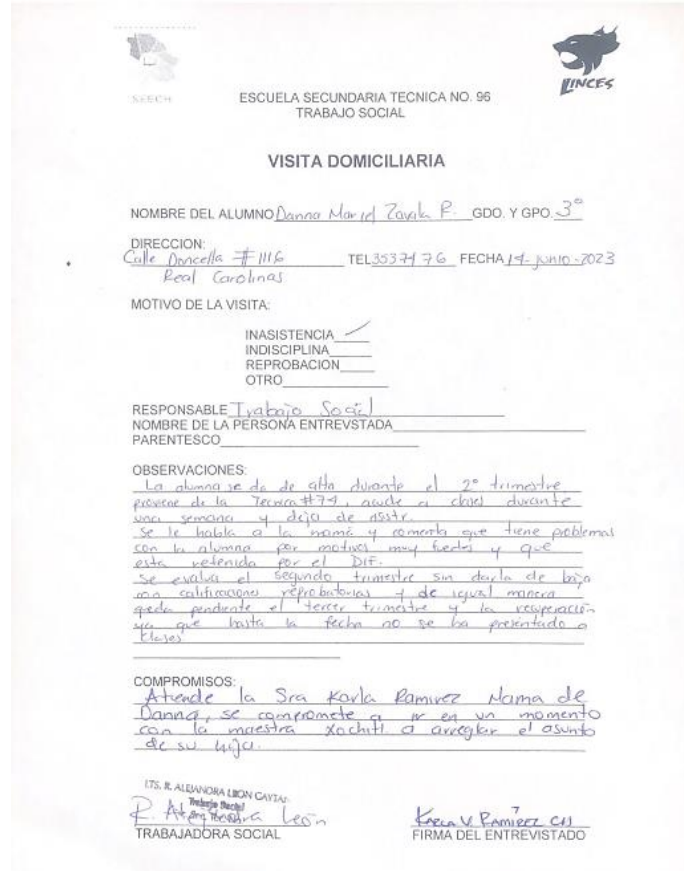 SEECH
LINCES
ESCUELA SECUNDARIA TECNICA NO. 96
TRABAJO SOCIAL
VISITA DOMICILIARIA
NOMBRE DEL ALUMNO Danna Zavala R. GDO. Y GPO. 3°
DIRECCION:
Calle Doncella #1116 TEL 3537476 FECHA 14-junio-2023
Real Carolinas
MOTIVO DE LA VISITA:
INASISTENCIA
INDISCIPLINA
REPROBACION
OTRO
RESPONSABLE Trabajo Social
NOMBRE DE LA PERSONA ENTREVSTADA
PARENTESCO
OBSERVACIONES:
La alumna se da de alta durante el 2° trimestre
proviene de la Tecnica #74, acude a clases durante
una semana y deja de asistr.
Se le habla a la mamá y comenta que tiene problemas
con la alumna por motivos muy fuertes y que
esta retenida por el DIF.
Se evalua el segundo trimestre sin darla de baja
con calificaciones reprobatorias y de igual manera
queda pendiente el tercer trimestre y la recuperación
ya que hasta la fecha no se ha presentado a
klases
COMPROMISOS:
Atiende la Sra Karla Ramirez Mama de
Danna, se compromete a ir en un momento
con la maestra Xochitl a arreglar el asunto
de su hija.
LTS. R. ALEJANDRA LEON
Trabajo Social
R. Alejandra León
TRABAJADORA SOCIAL
Karla V. Ramirez
FIRMA DEL ENTREVISTADO